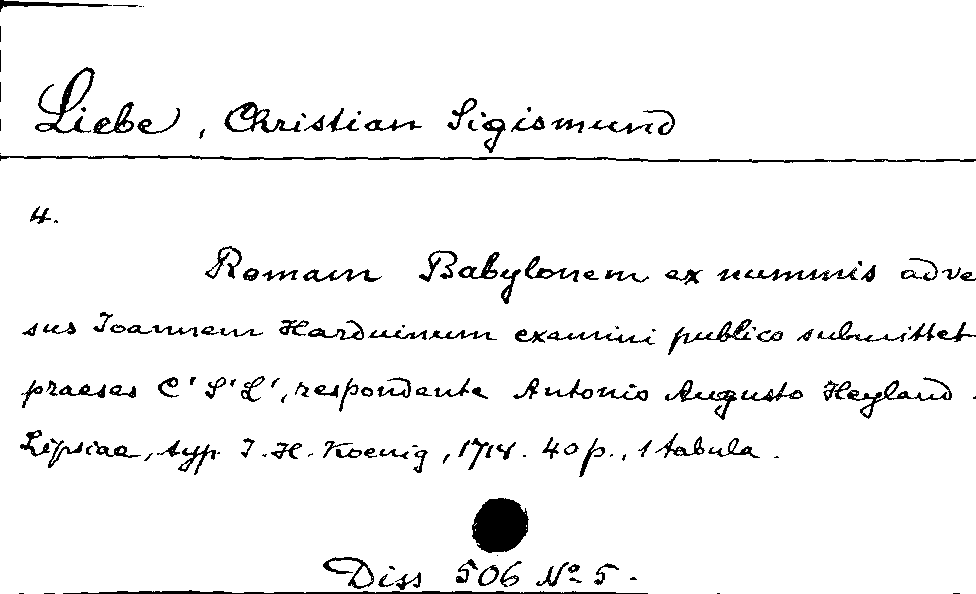 Liebe, Christian Sigismund
4.
Romam Babylonem ex nummis adve
sus Ioannem Harduinum examini publico submittet
praeses C' S' L', respondente Antonio Augusto Heyland.
Lipsiae, typ. I. H. Koenig, 1714. 40 p., 1 tabula.
Diss 506 No 5.